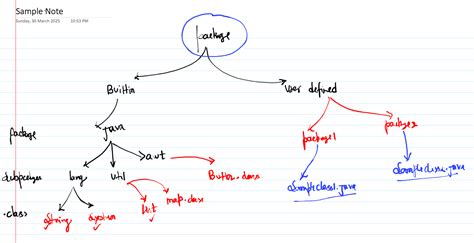 Sample Note
Sunday, 30 March 2025 10:53 PM
package
Builtin user defined
package java package1 package2
awt
subpackage lang util Button.class
sampleclass1.java
map.class
.class string system list